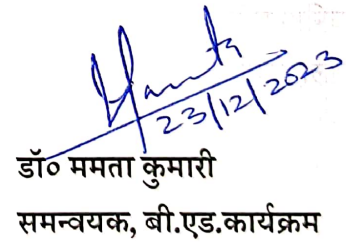 Mamta
23/12/2023
डॉ० ममता कुमारी
समन्वयक, बी.एड.कार्यक्रम